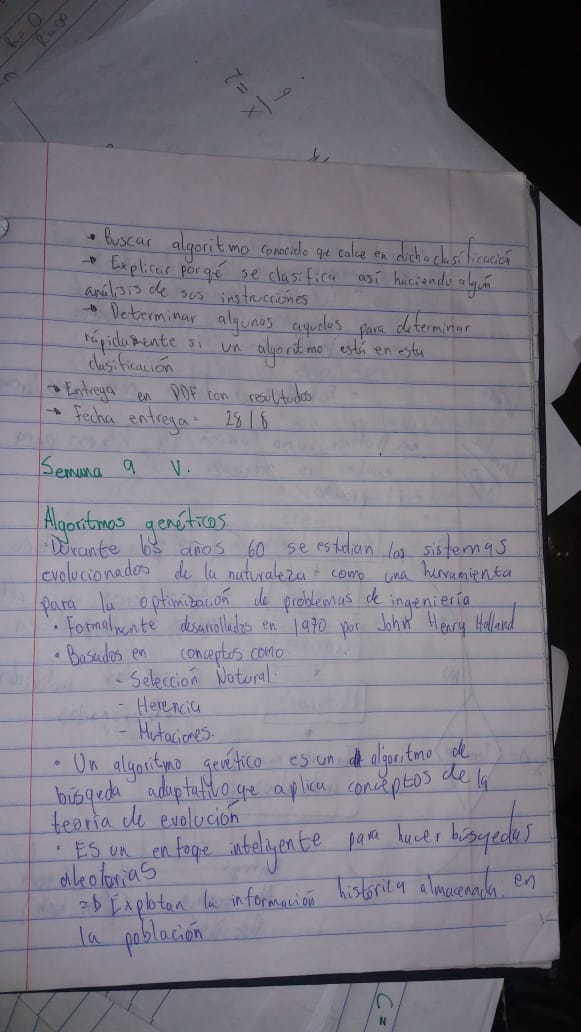 R=0
R=∞
→ Buscar algoritmo conocido qe calce en dicha clasificación
→ Explicar porqé se clasifica así haciendo algún
análisis de sus instrucciones
→ Determinar algunas ayudas para determinar
rápidamente si un algoritmo está en esta
clasificación
→ Entrega en PDF con resultados
→ Fecha entrega = 28/8
Semana 9 V.
Algoritmos genéticos
· Durante los años 60 se estudian los sistemas
evolucionados de la naturaleza como una herramienta
para la optimización de problemas de ingeniería
· Formalmente desarrollados en 1970 por John Henry Holland
· Basados en conceptos como:
- Selección Natural.
- Herencia
- Mutaciones.
· Un algoritmo genético es un algoritmo de
búsqeda adaptativo qe aplica conceptos de la
teoría de evolución
· ES un enfoqe inteligente para hacer búsqedas
aleatorias
=> Explotan la información histórica almacenada en
la población
C=